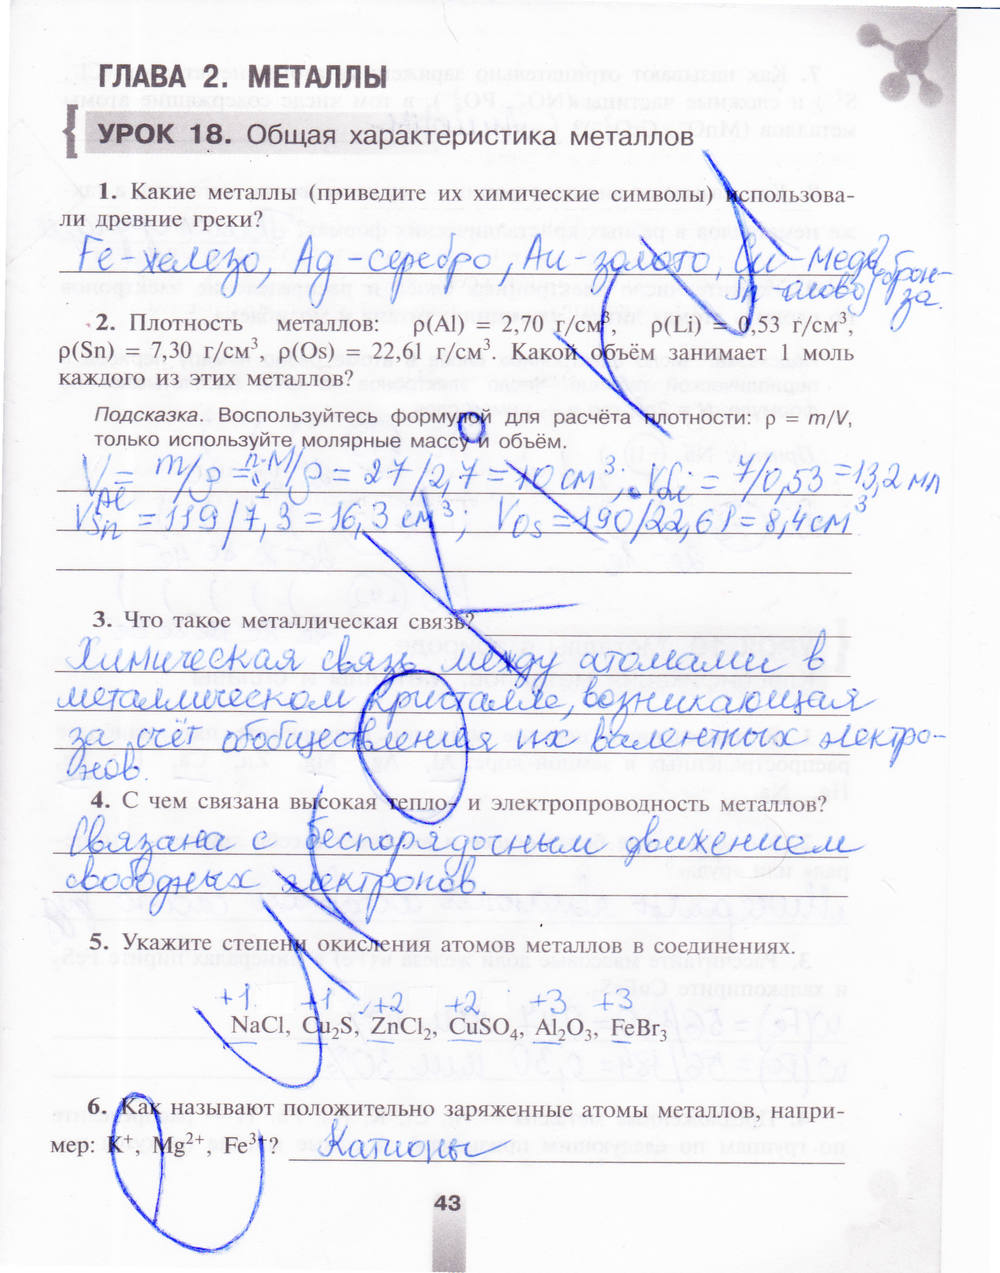 ГЛАВА 2. МЕТАЛЛЫ
УРОК 18. Общая характеристика металлов
1. Какие металлы (приведите их химические символы) использова-
ли древние греки?
Fe-железо, Ag-серебро, Au-золото, Cu-медь
Sn-олово
брон-
за.
2. Плотность металлов: ρ(Al) = 2,70 г/см³, ρ(Li) = 0,53 г/см³,
ρ(Sn) = 7,30 г/см³, ρ(Os) = 22,61 г/см³. Какой объём занимает 1 моль
каждого из этих металлов?
Подсказка. Воспользуйтесь формулой для расчёта плотности: ρ = m/V,
только используйте молярные массу и объём.
V Al = m/ρ = n·M/ρ = 27/2,7 = 10 см³, V Li = 7/0,53 = 13,2 мл
V Sn = 119/7,3 = 16,3 см³, V Os = 190/22,61 = 8,4 см³
3. Что такое металлическая связь?
Химическая связь между атомами в
металлическом кристалле, возникающая
за счёт обобществления их валентных электро-
нов.
4. С чем связана высокая тепло- и электропроводность металлов?
Связана с беспорядочным движением
свободных электронов.
5. Укажите степени окисления атомов металлов в соединениях.
+1 +1 +2 +2 +3 +3
NaCl, Cu₂S, ZnCl₂, CuSO₄, Al₂O₃, FeBr₃
6. Как называют положительно заряженные атомы металлов, напри-
мер: K⁺, Mg²⁺, Fe³⁺? Катионы
43